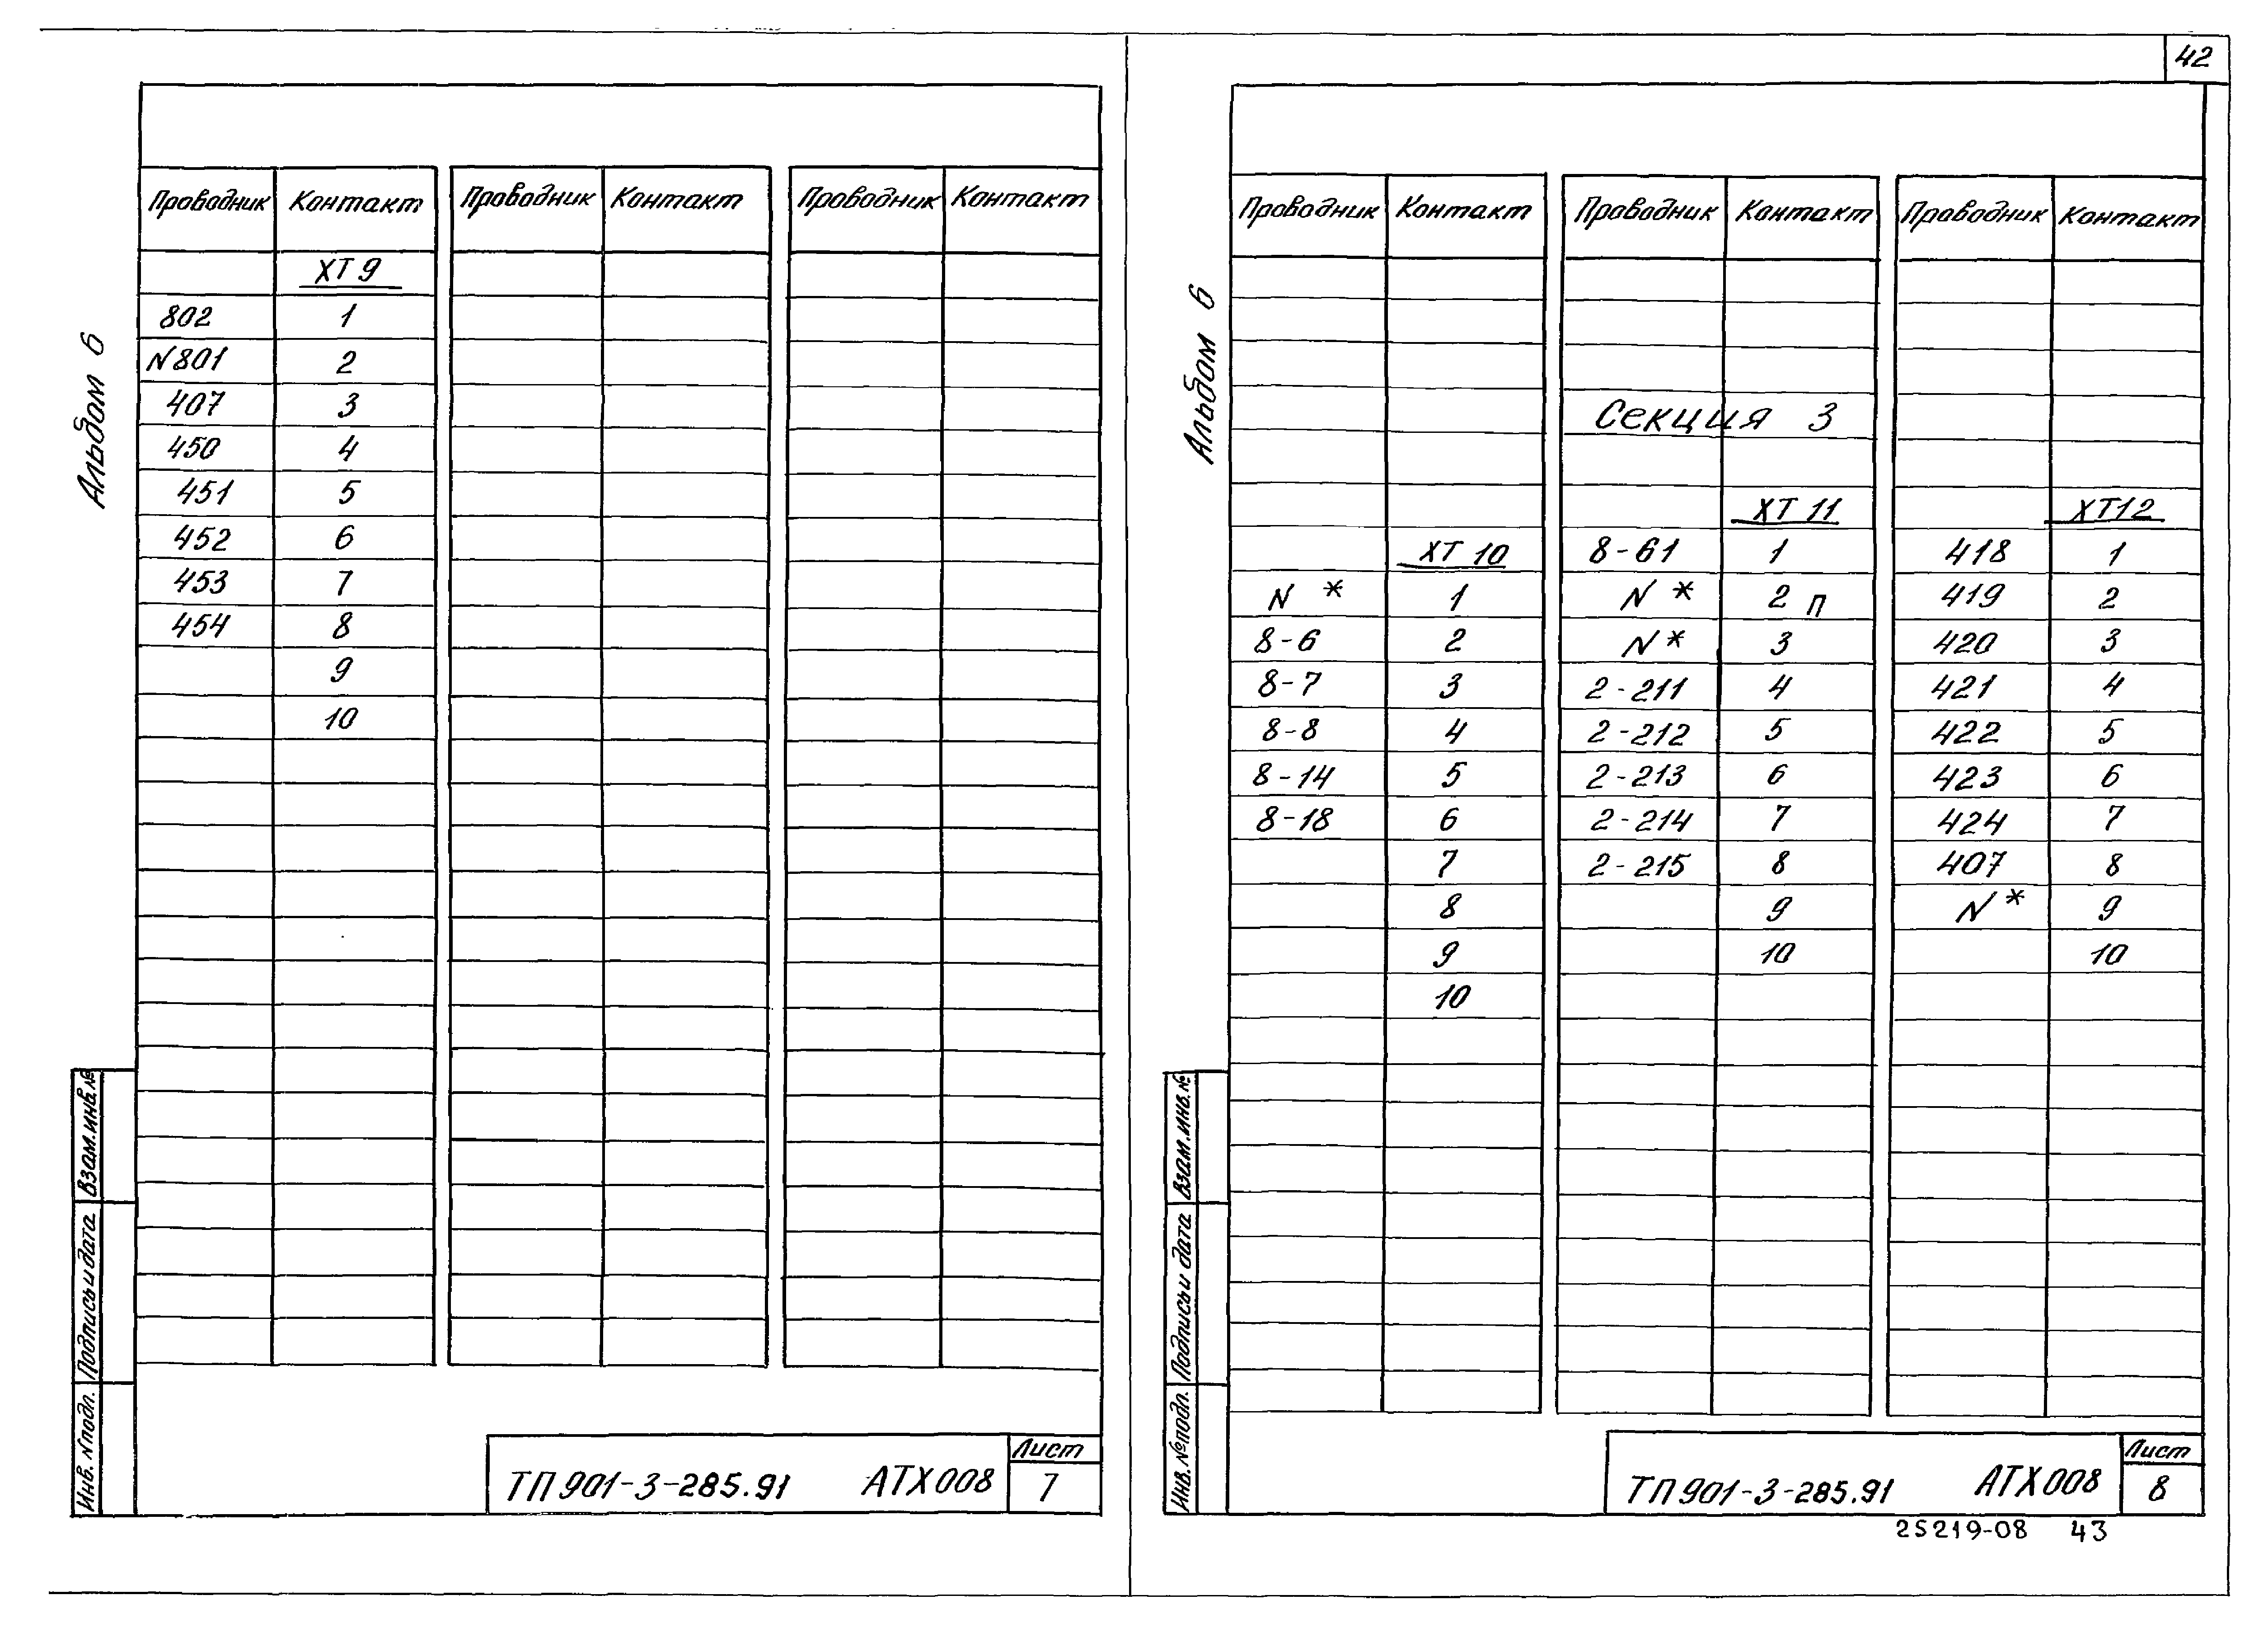 42
Альбом 6
Проводник Контакт Проводник Контакт Проводник Контакт
ХТ 9
802 1
N801 2
407 3
450 4
451 5
452 6
453 7
454 8
9
10
Взам.инв.№
Подпись и дата
Инв. N подл.
ТП 901-3-285.91 АТХ008
Лист
7
Альбом 6
Проводник Контакт Проводник Контакт Проводник Контакт
Секция 3
ХТ 11 ХТ12
ХТ 10 8-61 1 418 1
N * 1 N * 2 п 419 2
8-6 2 N * 3 420 3
8-7 3 2-211 4 421 4
8-8 4 2-212 5 422 5
8-14 5 2-213 6 423 6
8-18 6 2-214 7 424 7
7 2-215 8 407 8
8 9 N * 9
9 10 10
10
Взам.инв.№
Подпись и дата
Инв. № подл.
ТП 901-3-285.91 АТХ008
Лист
8
25219-08 43